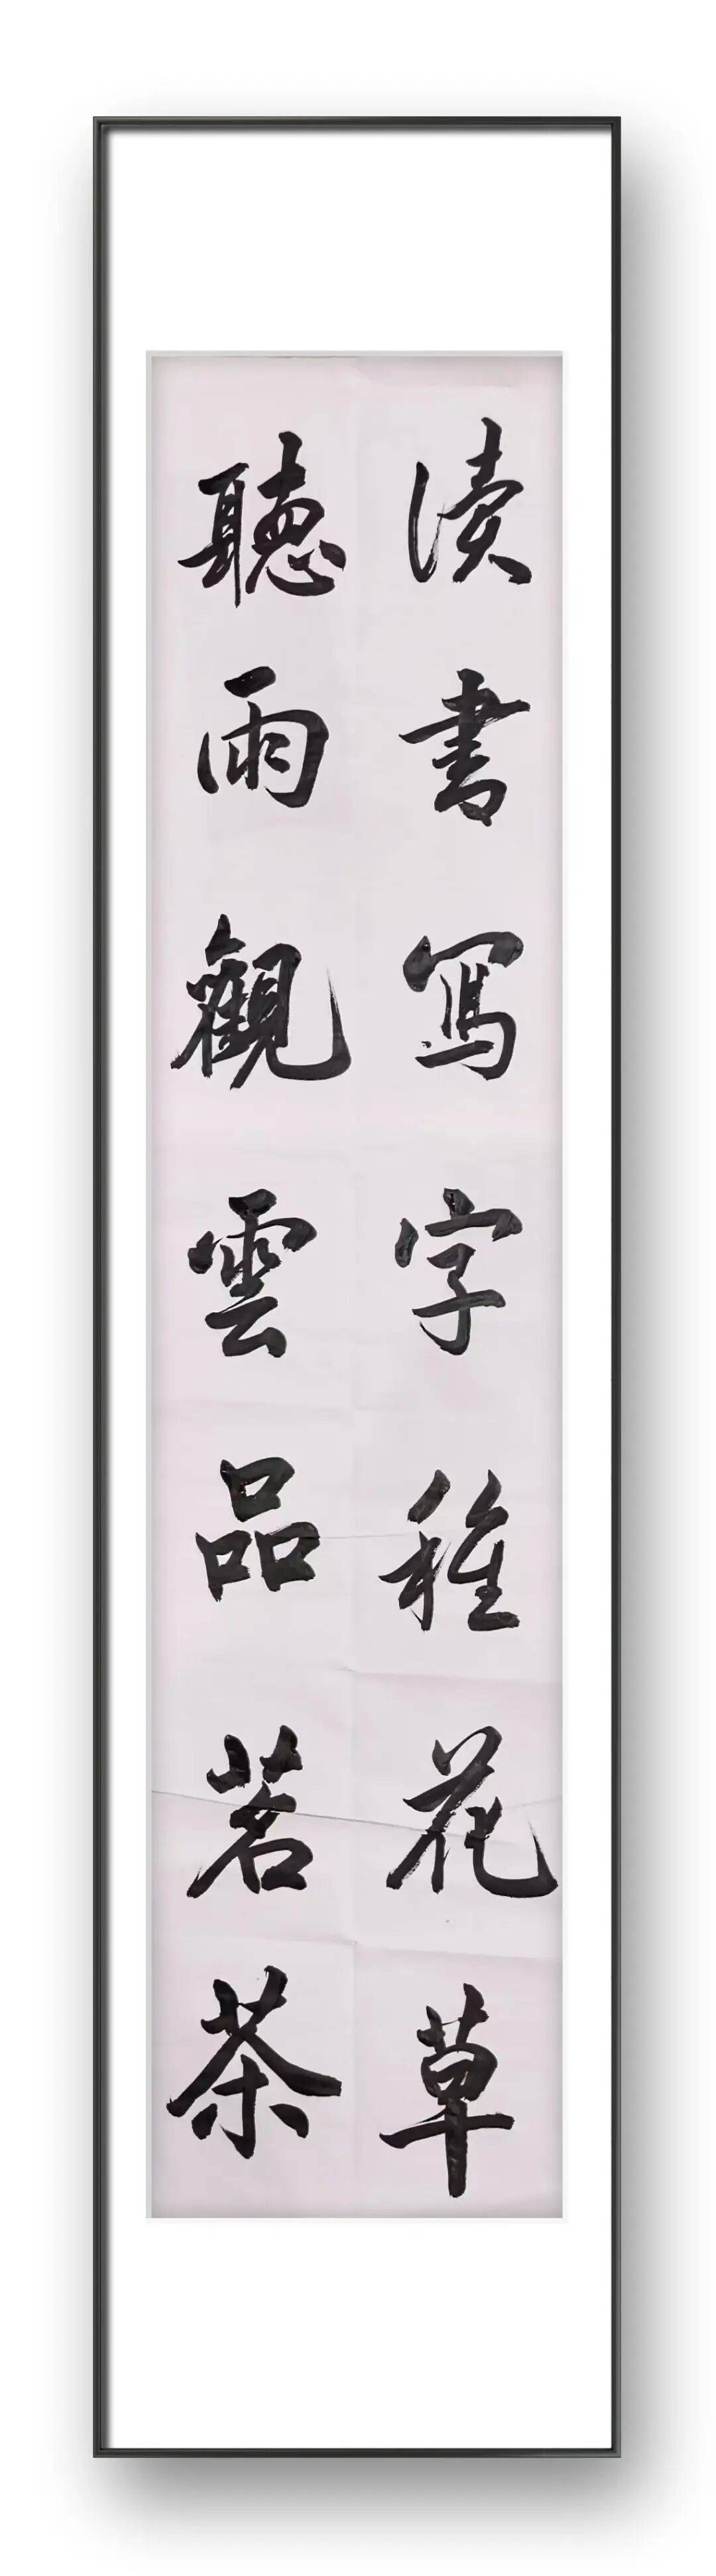 读書寫字種花草
聽雨觀雲品茗茶